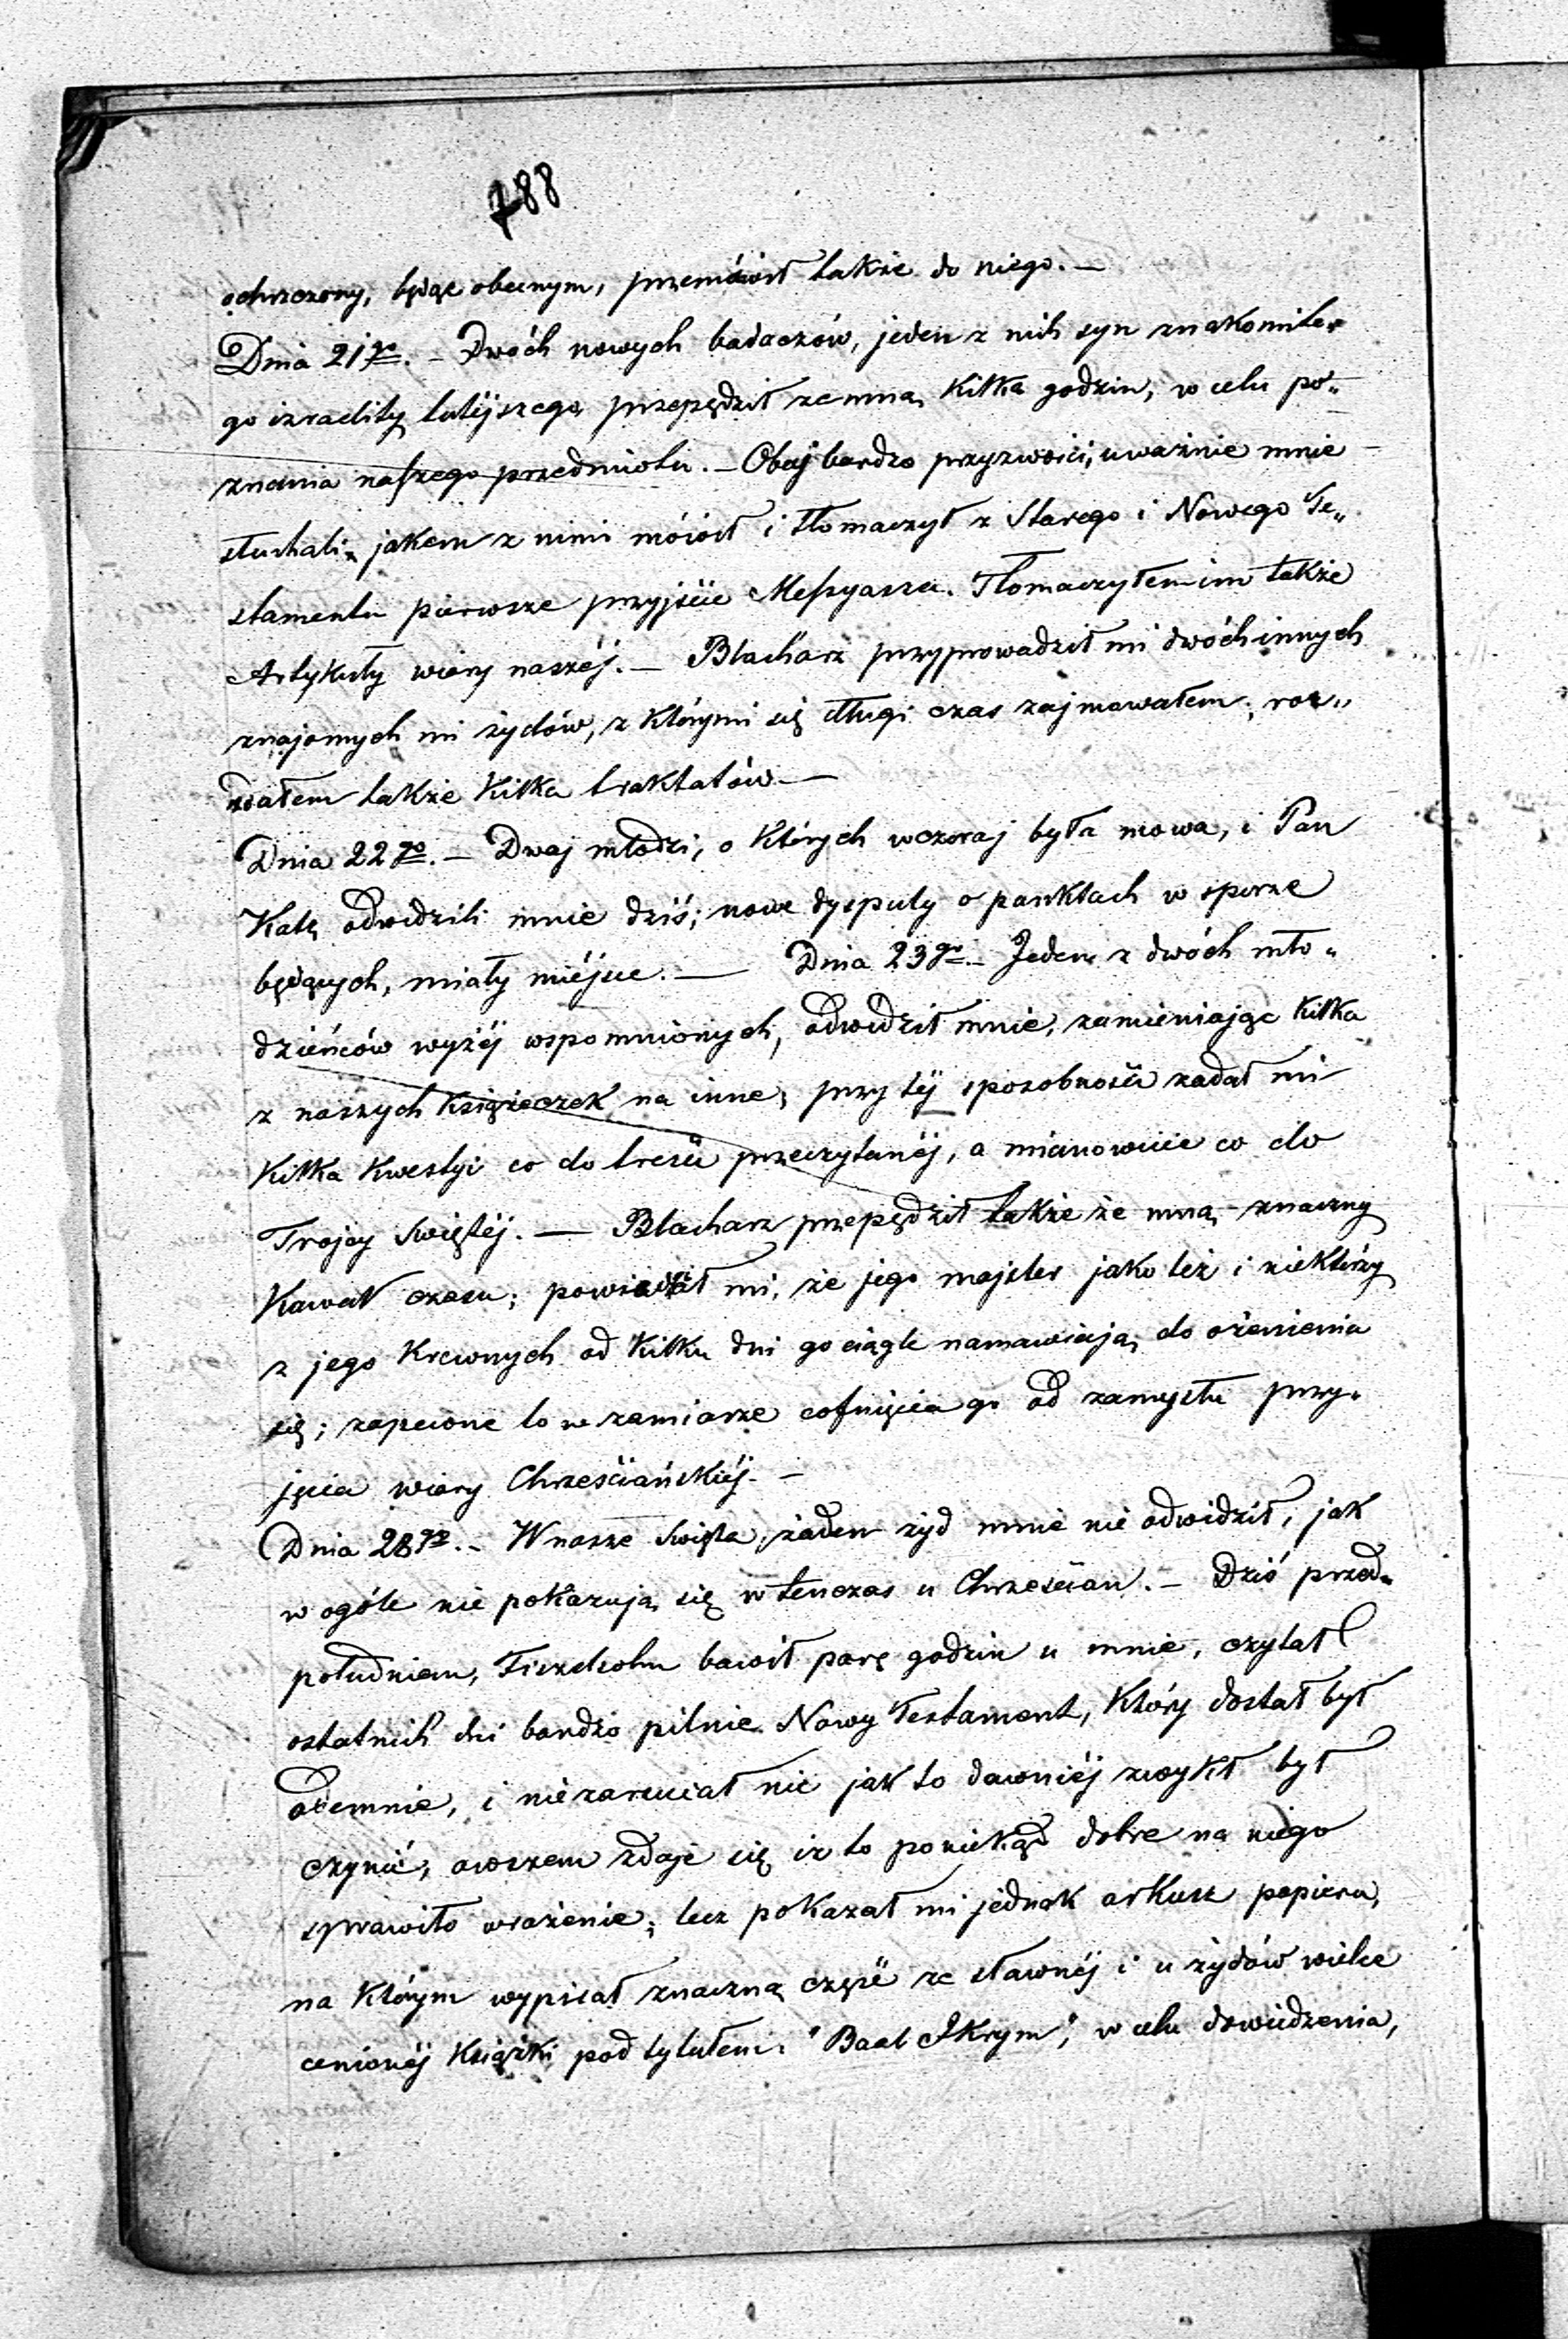 788
ochrzczony, będąc obecnym, przemówił także do niego. —
Dnia 21go. — Dwóch nowych badaczów, jeden z nich syn znakomite„
go izraelity tutéjszego, przepędził zemną kilka godzin, w celu po„
znania naszego przedmiotu. — Obaj bardzo przyzwoici, uważnie mnie
słuchali, jakem z nimi mówił i tłomaczył z Starego i Nowego Te„
stamentu pierwsze przyjście Messyasza. Tłomaczyłem im także
Artykuły wiary naszéj. — Blacharz przyprowadził mi dwóch innych
znajomych mi żydów, z którymi się długi czas zajmowałem; roz„
dałem także kilka traktatów —
Dnia 22go. — Dwaj młodzi, o których wczoraj była mowa, i Pan
Katz odwidzili mnie dziś; nowe dysputy o punktach w sporze
będących, miały miéjsce. — Dnia 23go. — Jeden z dwóch mło„
dzieńców wyżéj wspomnionych, odwidził mnie, zamieniając kilka
z naszych książeczek na inne, przy téj sposobności zadał mi
kilka kwestyi co do treści przeczytanéj, a mianowicie co do
Trojcy Swiętéj. — Blacharz przepędził także ze mną znaczny
kawał czasu; powiedział mi, że jego majster jako też i niektórzy
z jego krewnych od kilku dni go ciągle namawiają do ożenienia
się; zapewne to w zamiarze cofnięcia go od zamysłu przy„
jęcia wiary Chrześciańskiéj. —
Dnia 28go. — W nasze święta, żaden żyd mnie nie odwidził, jak
w ogóle nie pokazują się w tenczas u Chrześcian. — Dziś przed„
południem, Fiszelsohn bawił parę godzin u mnie, czytał
ostatnich dni bardzo pilnie Nowy Testament, który dostał był
odemnie, i niezarzucał nic jak to dawniéj zwykł był
czynić, owszem zdaje się iż to poniekąd dobre na niego
sprawiło wrażenie; lecz pokazał mi jednak arkusz papieru,
na którym wypisał znaczną część ze sławnéj i u żydów wielce
cenionéj książki pod tytułem: "Baal Ikrym", w celu dowiedzenia,